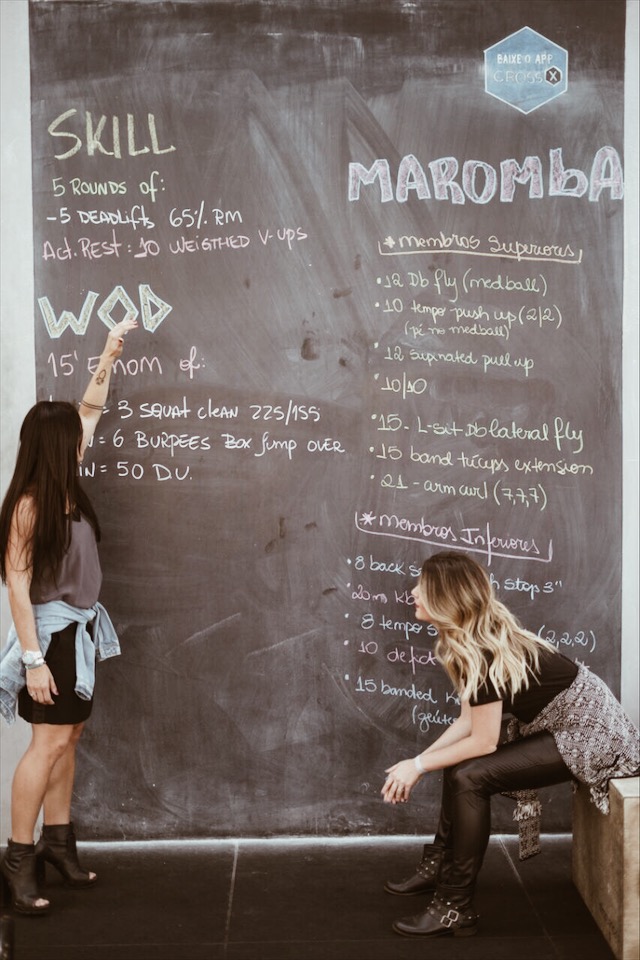 BAIXE O APP
CROSSX
SKILL
5 ROUNDS of:
-5 DEADLifts 65% RM
Act. Rest: 10 WEIGTHED V-UPS
WOD
15' EMOM of:
= 3 SQUAT CLEAN 225/155
= 6 BURPEES BOX JUMP OVER
IN = 50 D.U.
MAROMBA
*membros Superiores
•12 Db fly (medball)
•10 tempo push up (2|2)
(pé no medball)
•12 supinated pull up
•10|10
•15- L-sit Db lateral fly
•15 band triceps extension
•21 - arm curl (7,7,7)
*membros Inferiores
•8 back stop 3"
•20m
•8 tempo (2,2,2)
•10
•15 banded